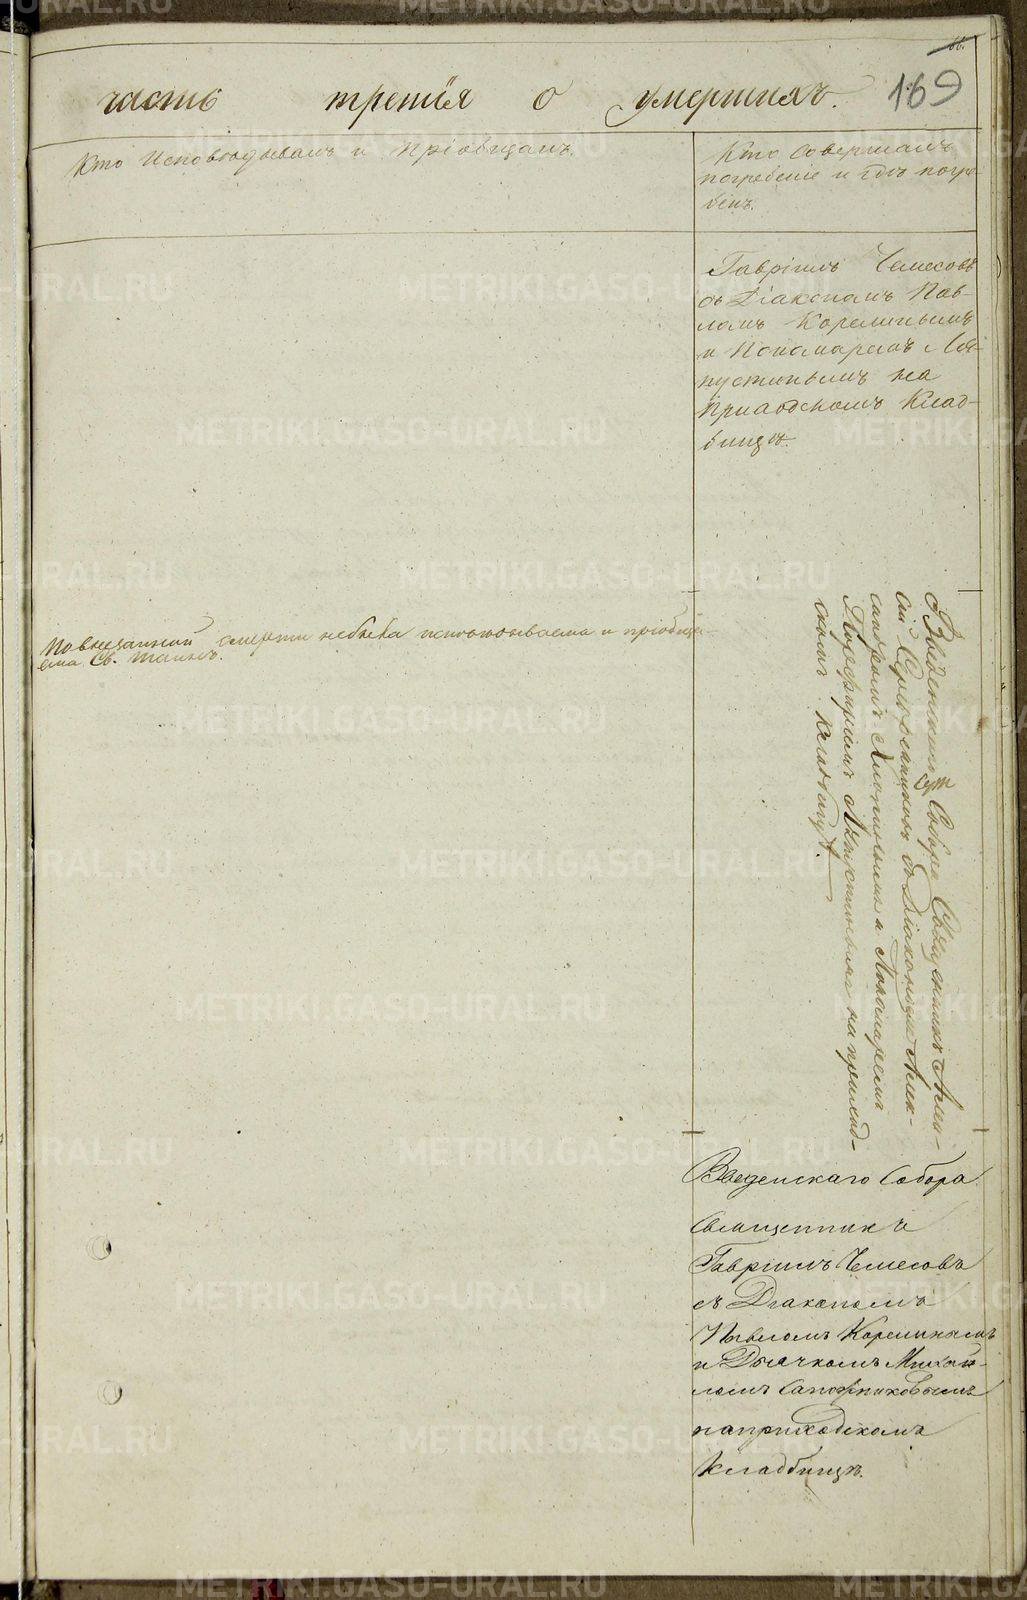 66.
169
часть третія о умершихъ.
Кто Исповѣдывалъ и Пріобщалъ.
Кто Совершалъ
погребеніе и гдѣ погре-
бенъ.
Гавріилъ Чемесовъ
съ Діакономъ Пав-
ломъ Корелинымъ
и Пономаремъ
на
Приходскомъ Клад-
бищѣ.
смерти небыла исповѣдываема и пріобща-
ема Св. Таинъ.
Введенскаго Собора Священникъ Алек-
сѣй съ Діакономъ Алек-
сандромъ и Пономаремъ
Порфиріемъ на приход-
скомъ Кладбищѣ
Введенскаго Собора
Священникъ
Гавріилъ Чемесовъ
съ Діакономъ
Павломъ Корелинымъ
и Дьячкомъ Михаи-
ломъ Сапожниковымъ
на приходскомъ
Кладбищѣ.
METRIKI.GASO-URAL.RU